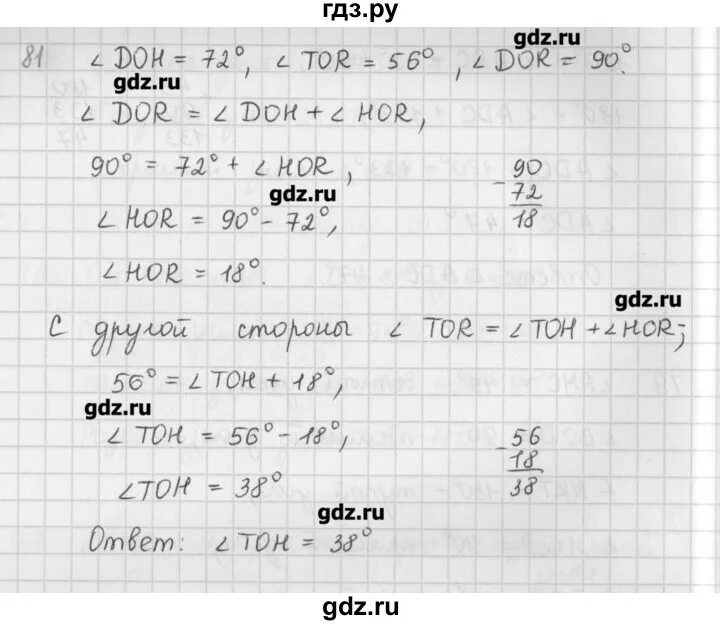 гдз.ру
81 ∠ DOH = 72°, ∠ TOR = 56°, ∠ DOR = 90°.
gdz.ru
gdz.ru
∠ DOR = ∠ DOH + ∠ HOR,
90° = 72° + ∠ HOR,
gdz.ru
∠ HOR = 90° - 72°,
- 90
72
18
∠ HOR = 18°.
gdz.ru
С другой стороны ∠ TOR = ∠ TOH + ∠ HOR;
56° = ∠ TOH + 18°,
gdz.ru
∠ TOH = 56° - 18°,
- 56
18
38
∠ TOH = 38°
gdz.ru
Ответ: ∠ TOH = 38°
gdz.ru